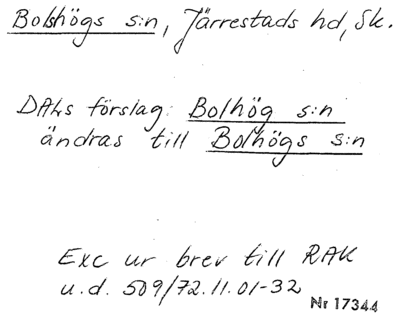 Bolshögs s:n, Järrestads hd, Sk.
DALs förslag: Bolhög s:n
ändras till Bolhögs s:n
Exc ur brev till RAK
u.d. 509/72.11.01-32
Nr 17344